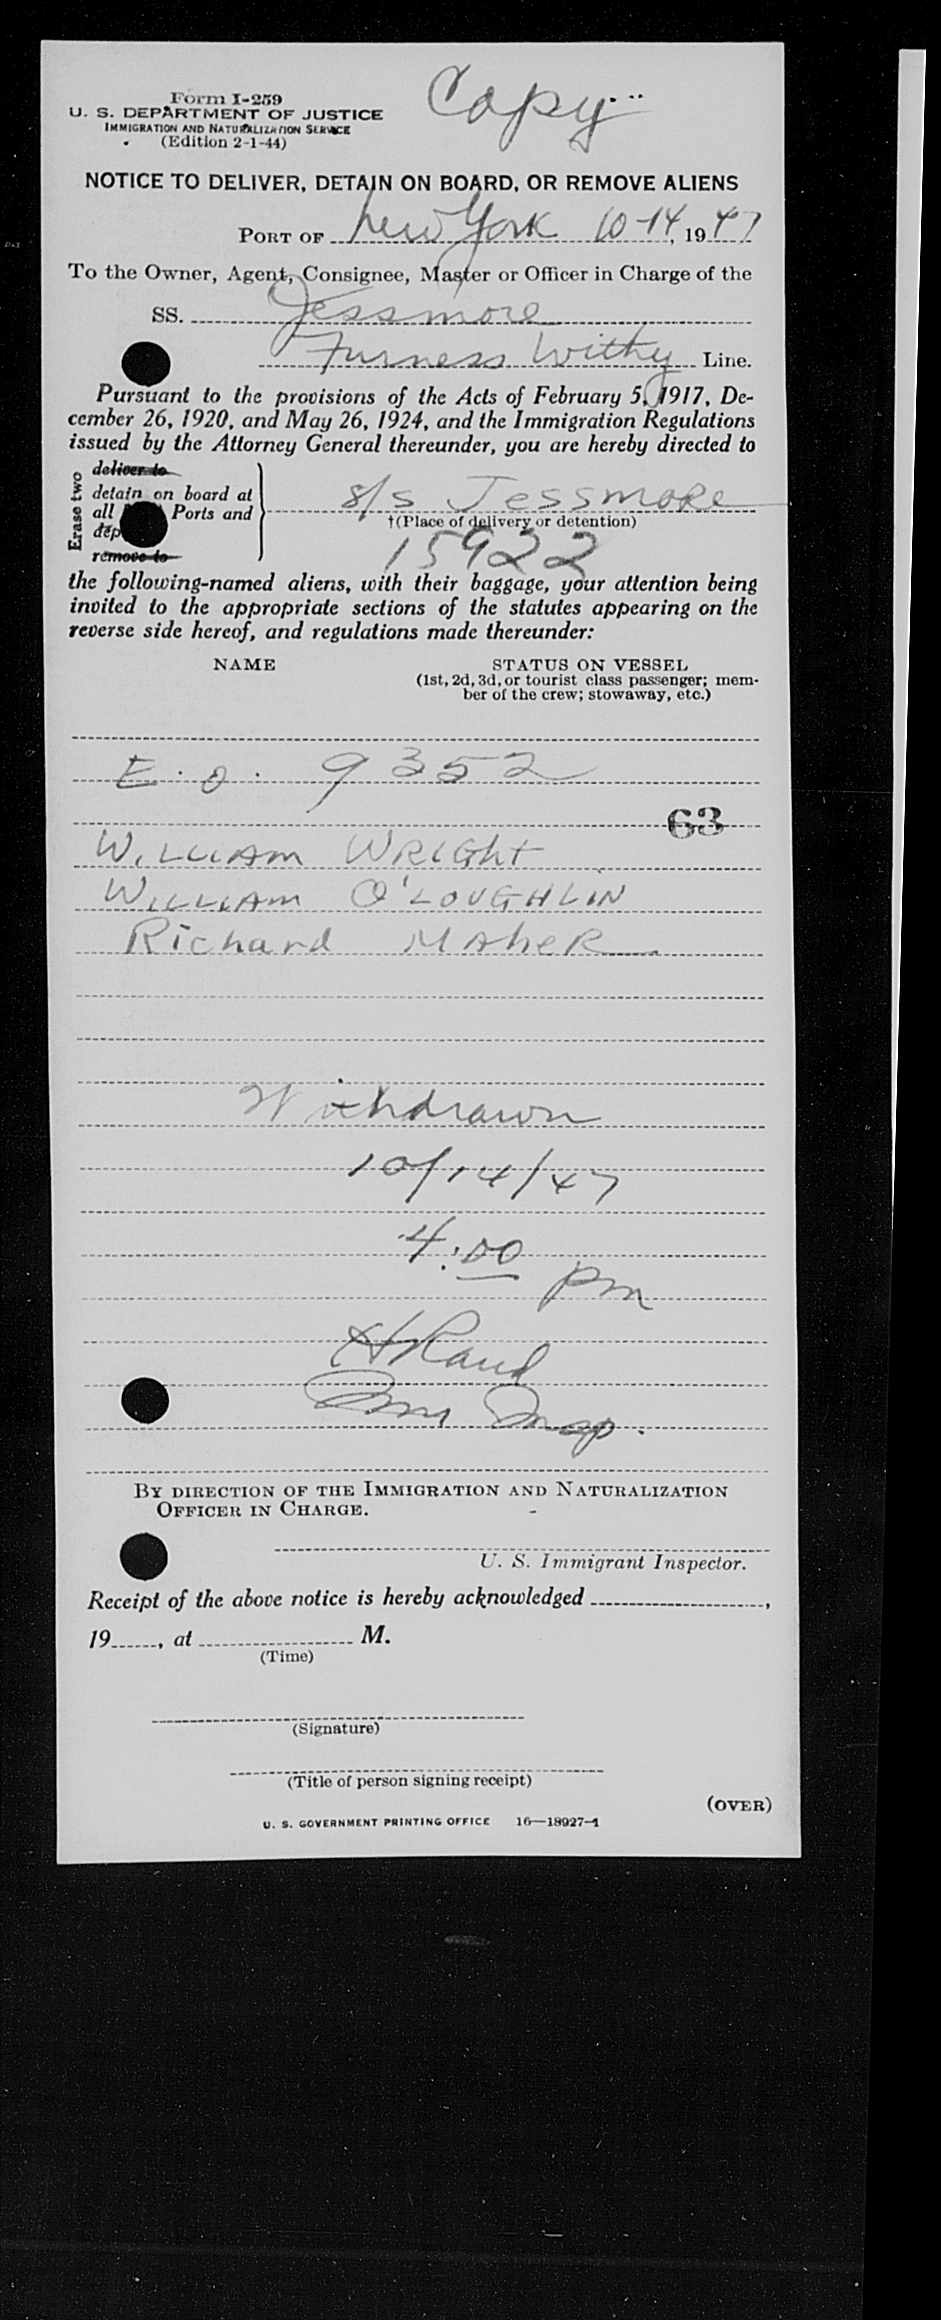 Form I-259
U. S. DEPARTMENT OF JUSTICE
IMMIGRATION AND NATURALIZATION SERVICE
(Edition 2-1-44)
Copy
NOTICE TO DELIVER, DETAIN ON BOARD, OR REMOVE ALIENS
PORT OF New York 10-14, 1947
To the Owner, Agent, Consignee, Master or Officer in Charge of the
SS. Jessmore
Furness Withy Line.
Pursuant to the provisions of the Acts of February 5, 1917, De-
cember 26, 1920, and May 26, 1924, and the Immigration Regulations
issued by the Attorney General thereunder, you are hereby directed to
Erase two
deliver to
detain on board at
all Ports and
dep
remove to
s/s Jessmore
†(Place of delivery or detention)
15922
the following-named aliens, with their baggage, your attention being
invited to the appropriate sections of the statutes appearing on the
reverse side hereof, and regulations made thereunder:
NAME
STATUS ON VESSEL
(1st, 2d, 3d, or tourist class passenger; mem-
ber of the crew; stowaway, etc.)
E. O. 9352
63
WILLIAM WRIGHT
WILLIAM O'LOUGHLIN
Richard MAHER
Withdrawn
10/14/47
4:00 pm
H Rand
Imm Insp.
BY DIRECTION OF THE IMMIGRATION AND NATURALIZATION
OFFICER IN CHARGE.
U. S. Immigrant Inspector.
Receipt of the above notice is hereby acknowledged ,
19 , at M.
(Time)
(Signature)
(Title of person signing receipt)
(OVER)
U. S. GOVERNMENT PRINTING OFFICE 16—18927-1